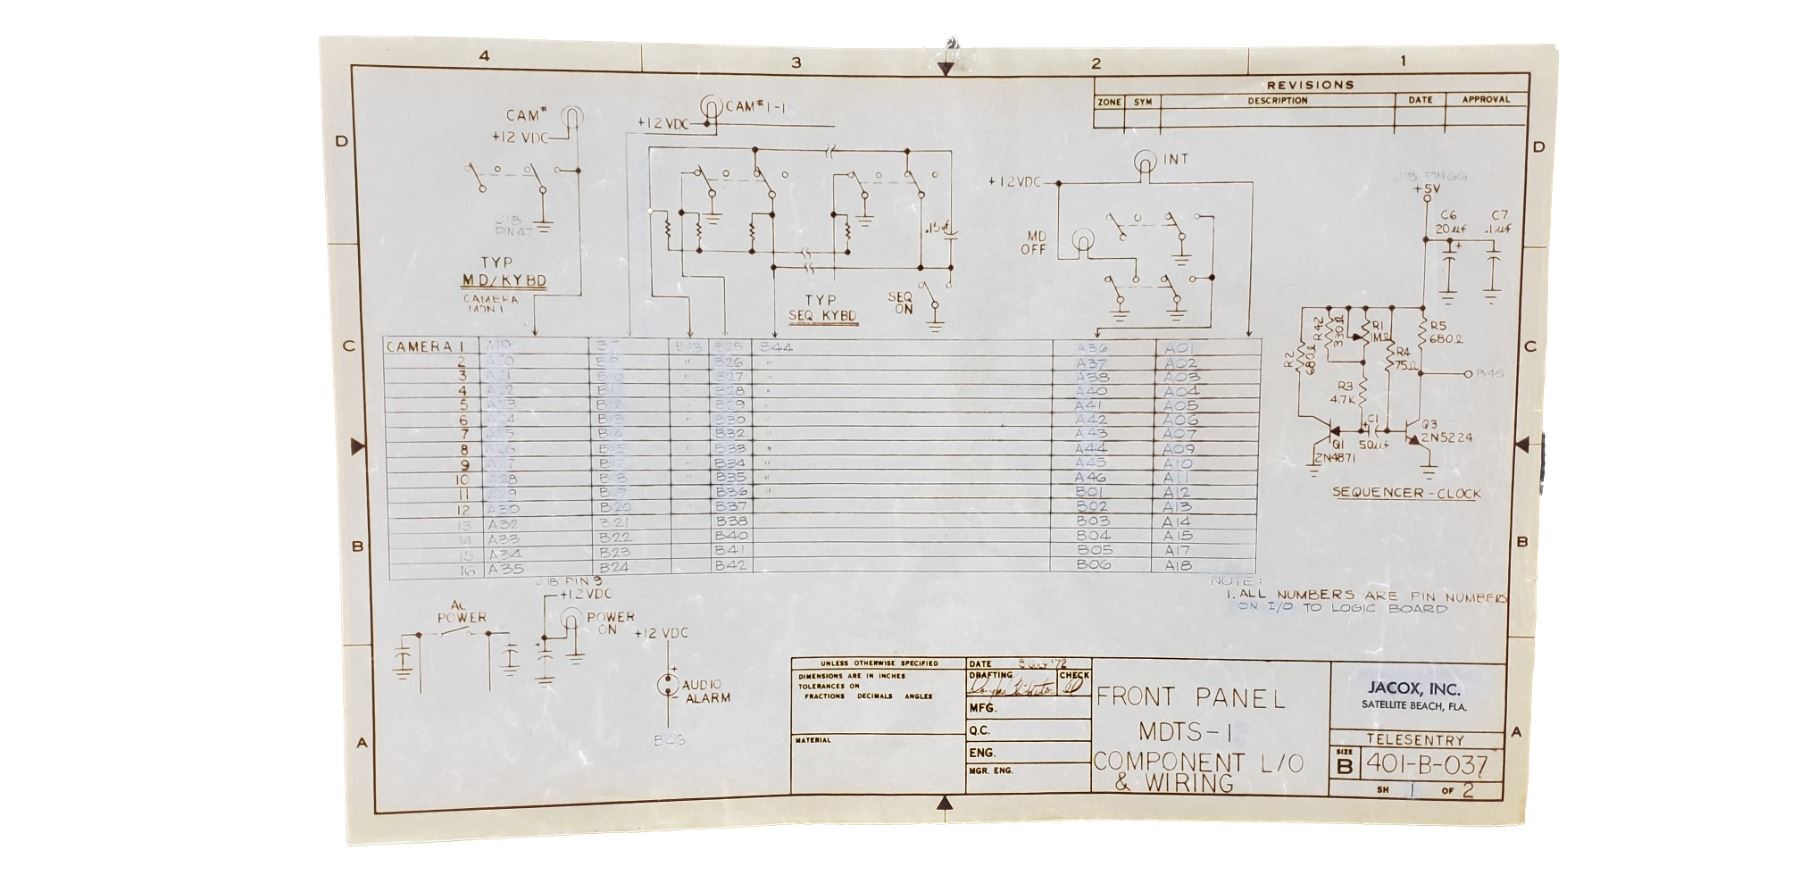 4 3 2 1
REVISIONS
ZONE SYM DESCRIPTION DATE APPROVAL
D D
CAM#
+12 VDC
J18
PIN 47
TYP
MD/KYBD
CAMERA
MON 1
CAM#1-1
+12 VDC
.15uf
TYP
SEQ KYBD
SEQ
ON
INT
+12VDC
MD
OFF
PIN GG
+5V
C6
20uf
+
C7
.1uf
R2
680Ω
R42
330Ω
R1
1MΩ
R4
75Ω
R5
680Ω
R3
4.7K
C1
+
50uf
Q1
2N4871
Q3
2N5224
B45
SEQUENCER-CLOCK
C C
CAMERA 1 A19 B43 B25 B44 A36 A01
2 A20 B26 " A37 A02
3 A21 " B27 " A38 A03
4 A22 " B28 " A40 A04
5 A23 " B29 " A41 A05
6 A24 " B30 " A42 A06
7 A25 " B32 " A43 A07
8 A26 " B33 " A44 A09
9 A27 " B34 " A45 A10
10 A28 " B35 " A46 A11
11 A29 " B36 " B01 A12
12 A30 B20 " B37 B02 A13
13 A32 B21 B38 B03 A14
14 A33 B22 B40 B04 A15
15 A34 B23 B41 B05 A17
16 A35 B24 B42 B06 A18
B B
NOTE:
1. ALL NUMBERS ARE PIN NUMBERS
ON I/O TO LOGIC BOARD
AC
POWER
J18 PIN 9
+12VDC
POWER
ON
+12 VDC
+
AUDIO
- ALARM
B46
A A
UNLESS OTHERWISE SPECIFIED
DIMENSIONS ARE IN INCHES
TOLERANCES ON
FRACTIONS DECIMALS ANGLES
MATERIAL
DATE JULY '72
DRAFTING CHECK
MFG.
Q.C.
ENG.
MGR. ENG.
FRONT PANEL
MDTS-1
COMPONENT L/O
& WIRING
JACOX, INC.
SATELLITE BEACH, FLA.
TELESENTRY
SIZE
B 401-B-037
SH 1 OF 2